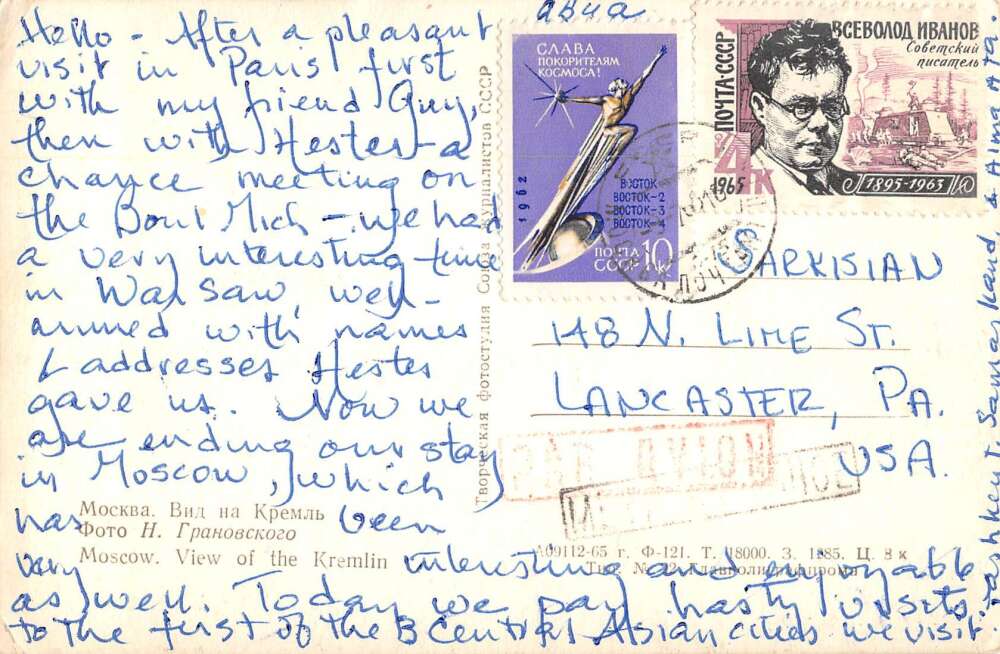 Hello - After a pleasant
visit in Paris first
with my friend Guy,
then with Hester - a
chance meeting on
the Boul Mich - we had
a very interesting time
in Warsaw, well-
armed with names
& addresses Hester
gave us. Now we
are ending our stay
in Moscow, which
has been
very interesting and enjoyable
as well. Today we pay hasty visits
to the first of the 3 Central Asian cities we visit:
Tashkent, Samarkand, & Alma Ata.
Москва. Вид на Кремль
Фото Н. Грановского
Moscow. View of the Kremlin
Творческая фотостудия Союза журналистов СССР
авиа
СЛАВА
ПОКОРИТЕЛЯМ
КОСМОСА!
1962
ВОСТОК
ВОСТОК-2
ВОСТОК-3
ВОСТОК-4
ПОЧТА
СССР 10 К
ПОЧТА·СССР
ВСЕВОЛОД ИВАНОВ
Советский
писатель
4 К
1965
1895-1963
SARKISIAN
148 N. LIME ST.
LANCASTER, PA.
USA.
PAR AVION
А09112-65 г. Ф-121. Т. 18000. З. 1285. Ц. 8 к
Тип. № 12 Главполиграфпрома